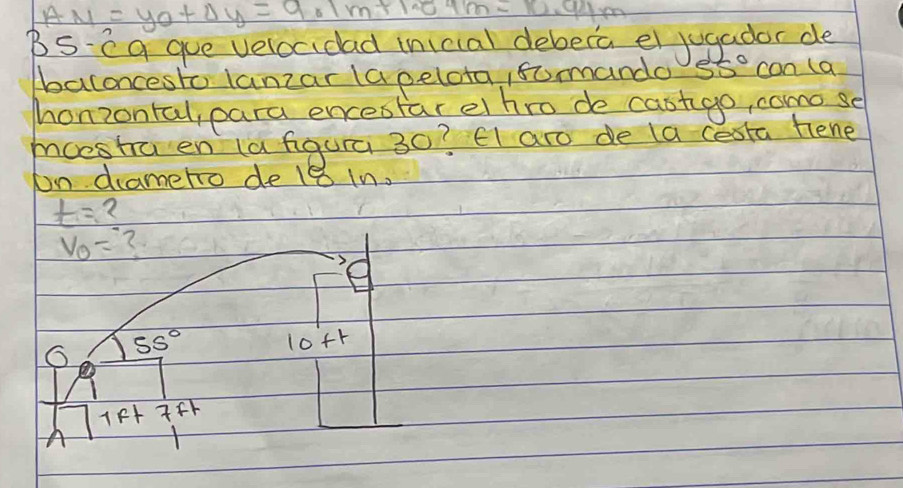 AN = y0 + Δy = 9.1m +
35-¿a que velocidad inicial debería el jugador de
baloncesto lanzar la pelota, formando 55° con la
honzontal, para encestar el tiro de castigo, como se
moestra en la figura 30? El aro de la cesta tiene
un diametro de 18 in.
t=?
Vo=?
55°
10 ft
1ft 7ft